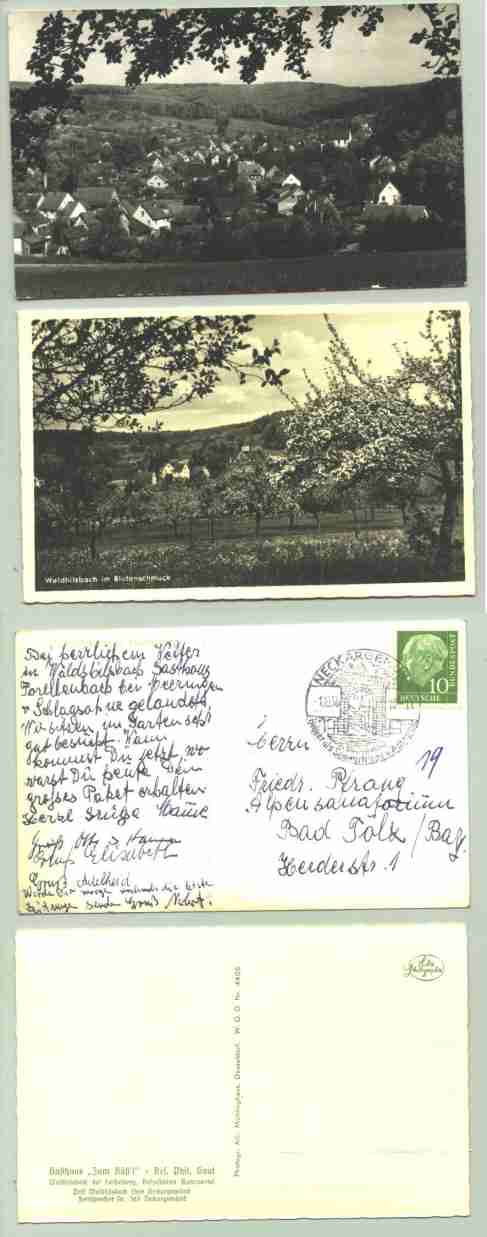 Waldhilsbach im Blütenschmuck
Bei herrlichem Wetter
in Waldhilsbach Gasthaus
Forellenbach bei Heeringen
u Schlagsahne gelandet,
Wir sitzen im Garten sehr
gut besucht. Wann
kommst Du jetzt, wo
warst Du heute. Dein
großes Paket erhalten
Herzl Grüße
Gruß Otto u
Gruß Elisabeth
Gruß Adelheid
Werde Dir morgen
senden Gruß
NECKARGEM
10
DEUTSCHE
BUNDESPOST
19
Herrn
Friedr. Pfrang
Alpensanatorium
Bad Tölz / Bay.
Herderstr. 1
Photogr. Ad. Düsseldorf. W. O. D. Nr. 4405
Echte
Photographie
Gasthaus „Zum Röß'l" - Bes. Phil. Gaul
Waldhilsbach bei Heidelberg,
Post Waldhilsbach über Neckargemünd
Fernsprecher Nr. 363 Neckargemünd